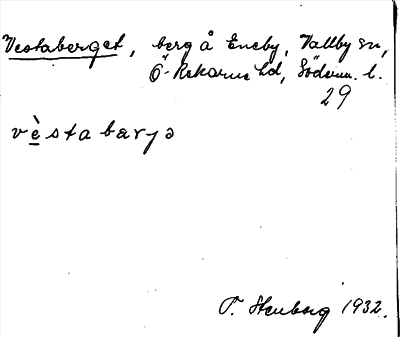 Vestaberget, berg å Eneby, Vallby sn,
Ö-Rekarne hd, Söderm. l.
29
vèstabarjə
T. Stenborg 1932.